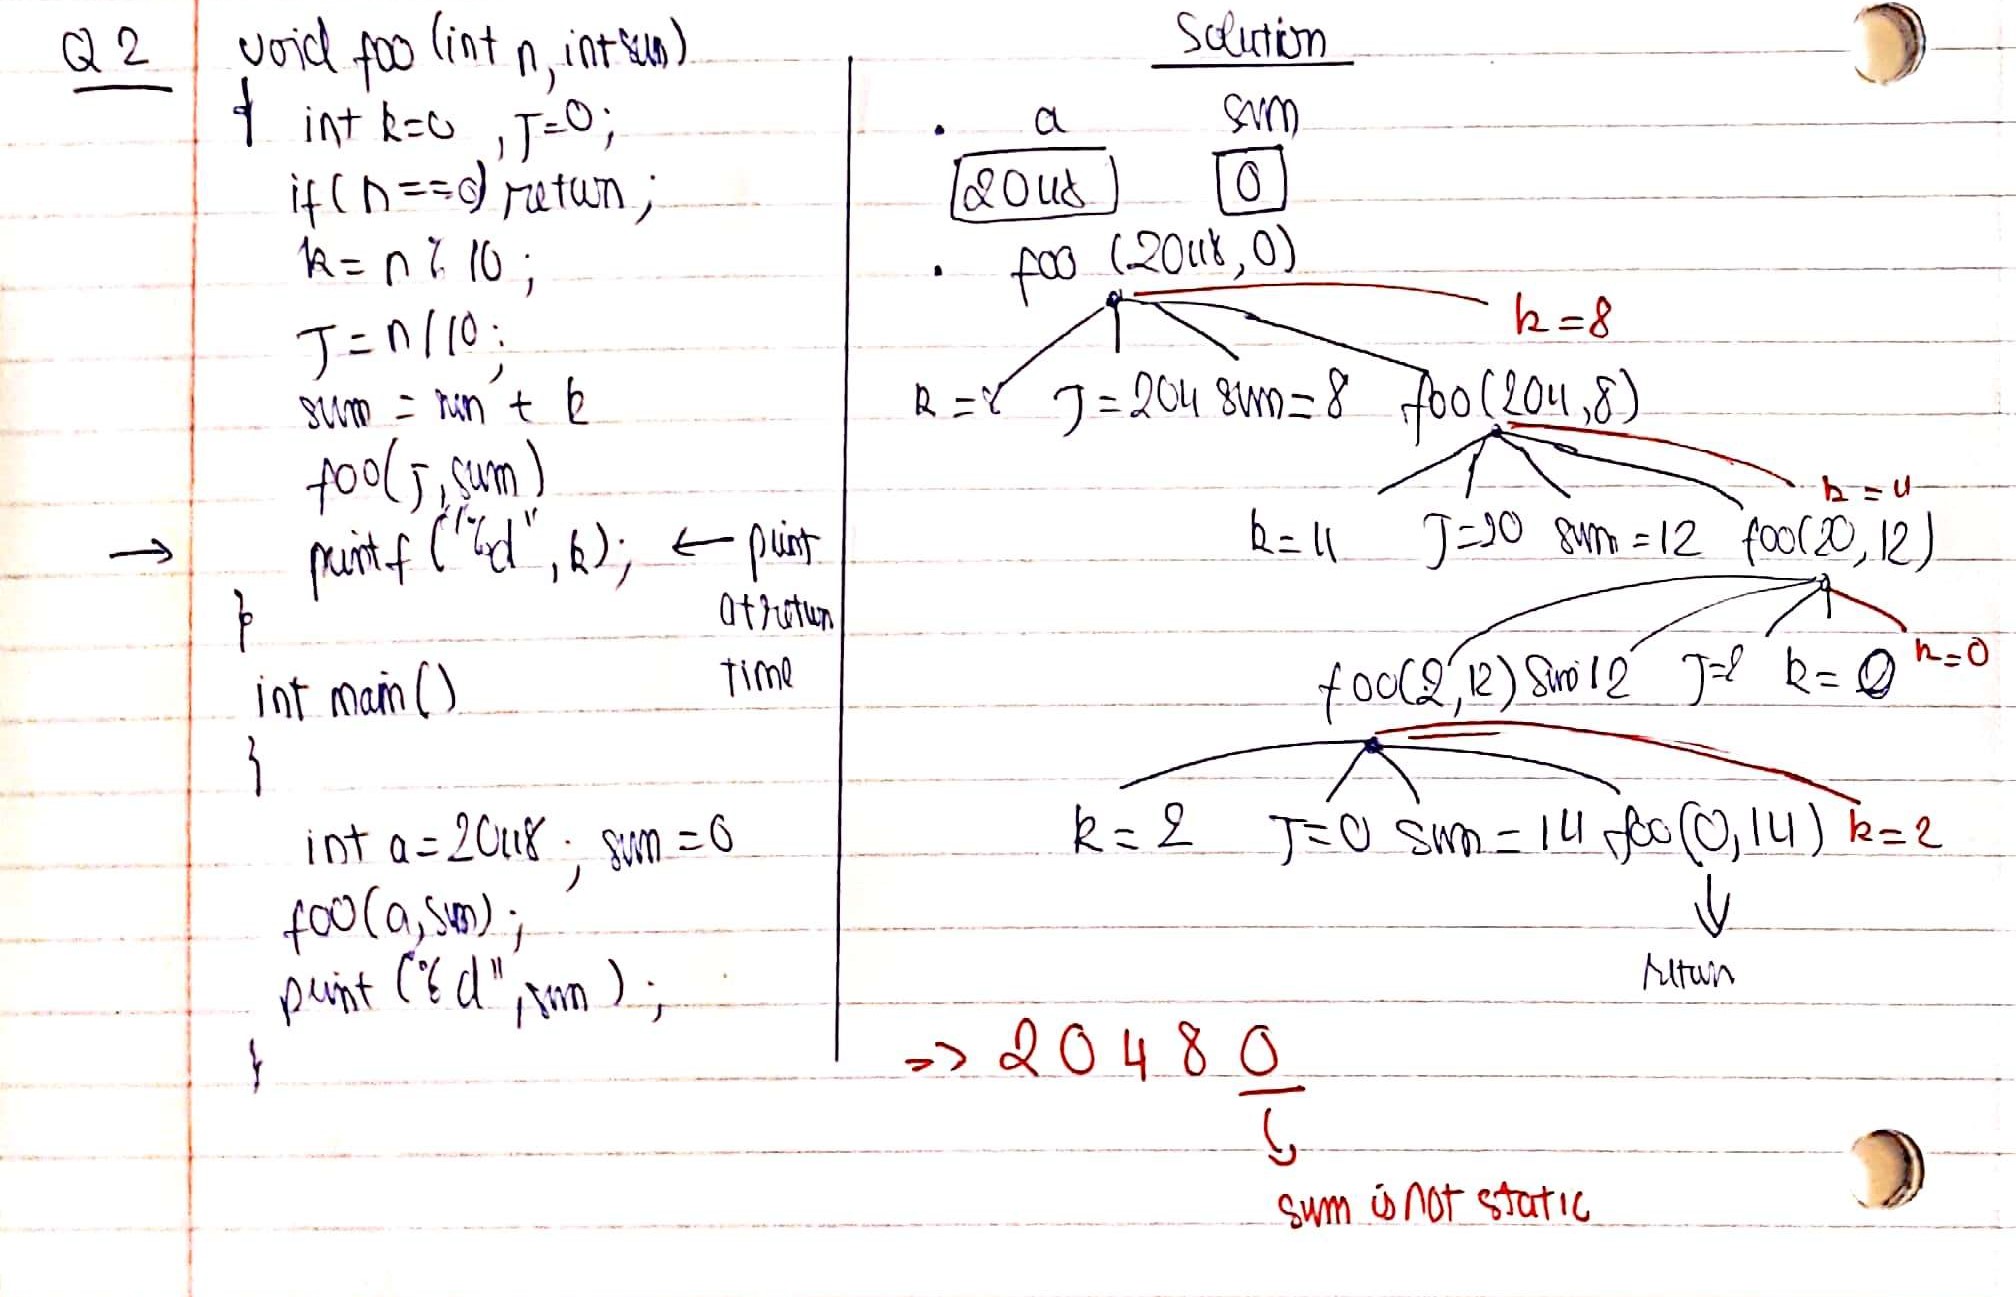 Q2
void foo (int n, int sum)
{ int k=0 , J=0;
if(n==0) return;
k = n % 10;
J = n/10;
sum = sum + k
foo(J, sum)
→ printf ("%d", k); ← print
at return
time
}
int main()
{
int a=2048; sum=0
foo(a, sum);
print ("%d", sum);
}
Solution
• a sum
2048 0
• foo (2048, 0)
k=8
k=8 J=204 sum=8 foo(204,8)
k=4
k=4 J=20 sum=12 foo(20,12)
k=0
foo(2,12) sum 12 J=2 k=0
k=2 J=0 sum=14 foo(0,14) k=2
↓
return
=> 2 0 4 8 0
sum is not static